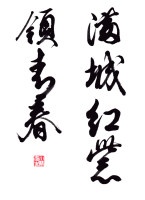 满城红紫
领春春